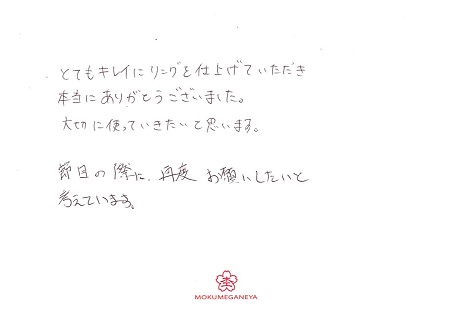 とてもキレイにリングを仕上げていただき
本当にありがとうございました。
大切に使っていきたいと思います。
節目の際に、再度お願いしたいと
考えています。
MOKUMEGANEYA